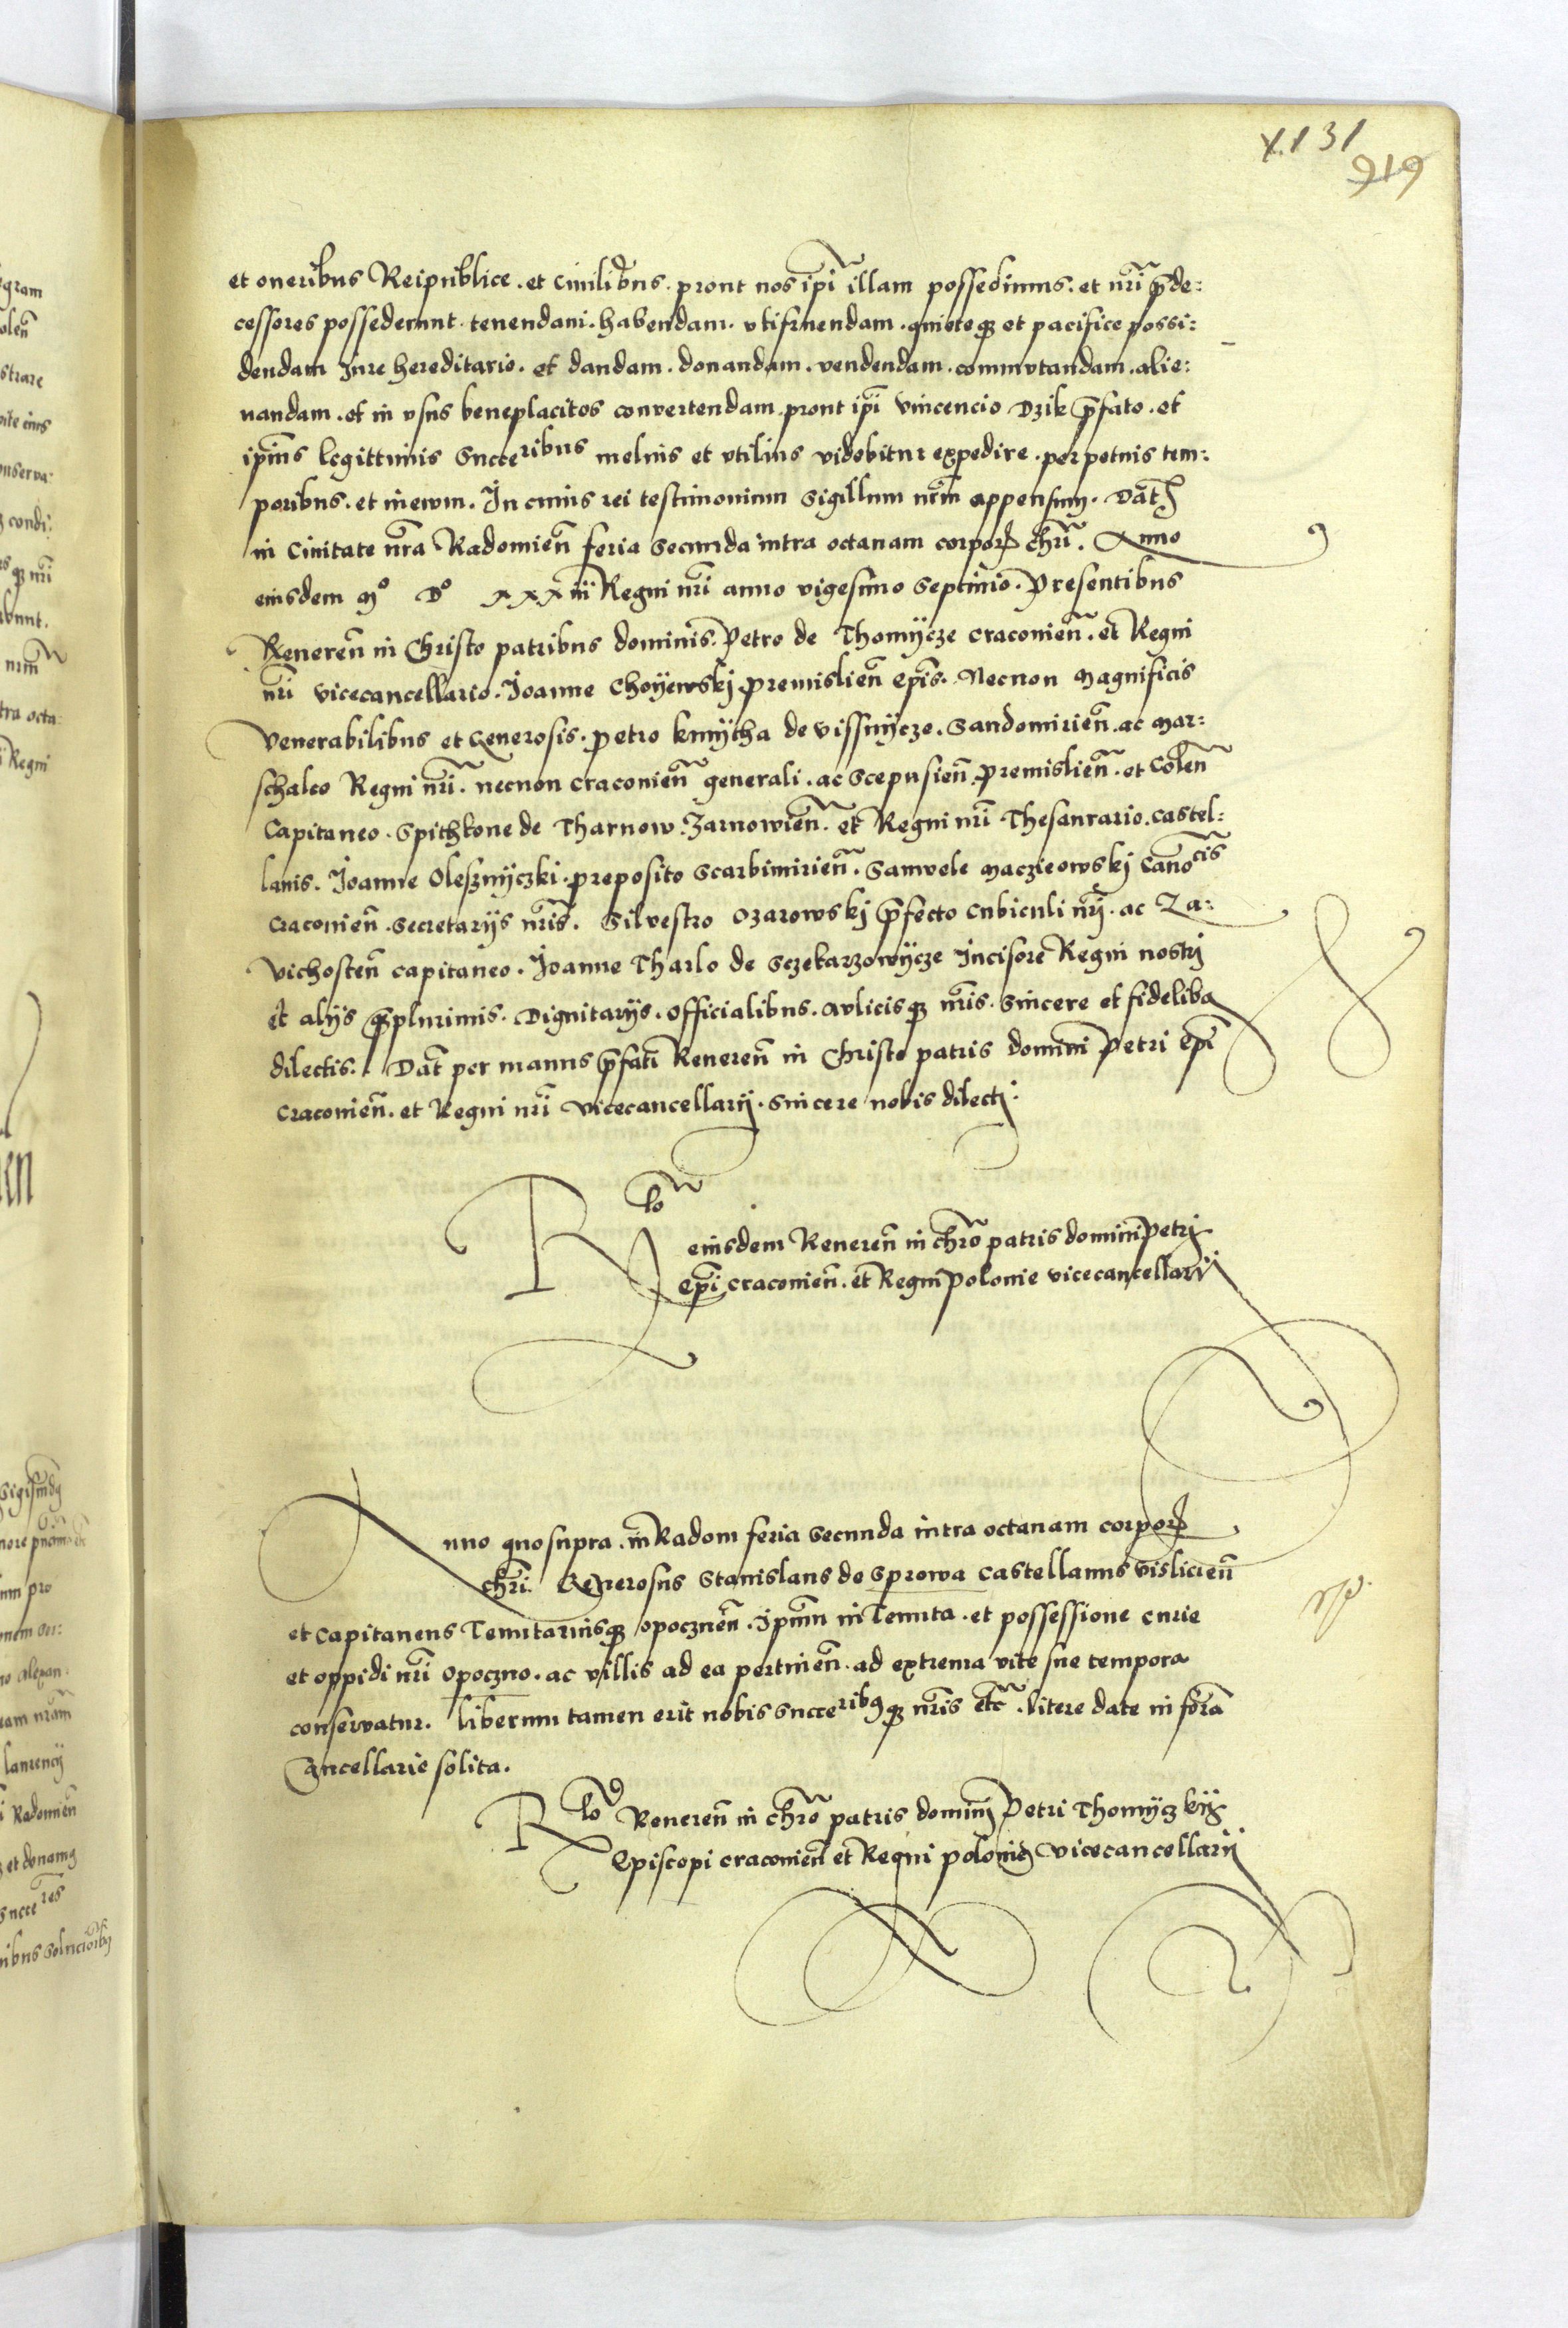 131
919
et oneribus Reipublice. et Civilibus. prout nos ip̄i illam possedimus. et nr̄i p̄de:
cessores possederunt. tenendam. habendam. vtifruendam. quieteqȝ et pacifice possi:
dendam Jure hereditario. et dandam. donandam. vendendam. commvtandam. alie:
nandam. et in vsus beneplacitos convertendam. prout ip̄i Vincencio Dzik p̄fato. et
ip̄ius legittimis Succeribus melius et vtilius videbitur expedire. perpetuis tem:
poribus. et in ewm. In cuius rei testimonium Sigillum nr̄m appensum. Dat̄
in Civitate nr̄a Radomien̄ feria Secunda intra octauam corporis chr̄i. Anno
eiusdem Mo Do xxxiii Regni nr̄i anno vigesimo Septimo. Presentibus
Reueren̄ in Christo patribus dominis. Petro de Thomycze Craconien̄. et Regni
nr̄i vicecancellario. Joanne Choyewskj Premislien̄ Ep̄is. Necnon Magnificis
Venerabilibus et Generosis. Petro kmytha de vissnycze. Sandomirien̄. ac Mar:
schalco Regni nr̄i. necnon Craconien̄ generali. ac Scepusien̄. Premislien̄. et Colen̄
Capitaneo. Spithkone de Tharnow. Zarnowien̄. et Regni nr̄i Thesaurario. Castel:
lanis. Joanne Olesznyczki. preposito Scarbimirien̄. Samuele Maczieowskj Canocis
Craconien̄. Secretarijs nr̄is. Silvestro Ozarowskj p̄fecto Cubiculi nr̄j. ac Za:
vichosten̄ capitaneo. Joanne Tharlo de Sczekarzowycze Incisore Regni nostrj
et alijs q̄plurimis. Dignitarijs. Officialibus. Avlicisqȝ nr̄is. Sincere et fidelibȝ
dilectis. Dat̄ per manus p̄fati Reueren̄ in Christo patris domini Petri Ep̄i
Craconien̄. et Regni nr̄i Vicecancellarij. Sincere nobis dilectj.
Rlo
eiusdem Reueren̄ in chr̄o patris domini Petrj
Ep̄i Craconien̄. et Regni Polonie vicecancellarij
Anno quo supra. in Radom feria Secunda intra octauam corporis
chr̄i. Generosus Stanislaus de Sprowa Castellanus Vislicien̄
et Capitaneus Tenutariusqȝ Opocznen̄. ip̄um in Tenuta. et possessione curie
et oppidi nr̄i Opoczno. ac villis ad ea pertinen̄. ad extrema vite sue tempora
conservatur. liberum tamen erit nobis Succeribȝqȝ nr̄is etc̄. litere date in for̄a
Cancellarie solita.
Rlo Reueren̄ in chr̄o patris dominj Petri Thomyczkij
Episcopi Craconien̄ et Regni Polonie Vicecancellarij